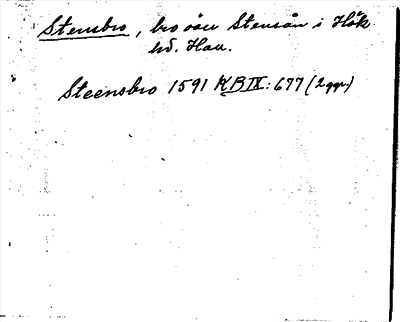 Stensbro, bro över Stensån i Hök
hd. Hall.
Steensbro 1591 KB IX: 677 (2 ggr)